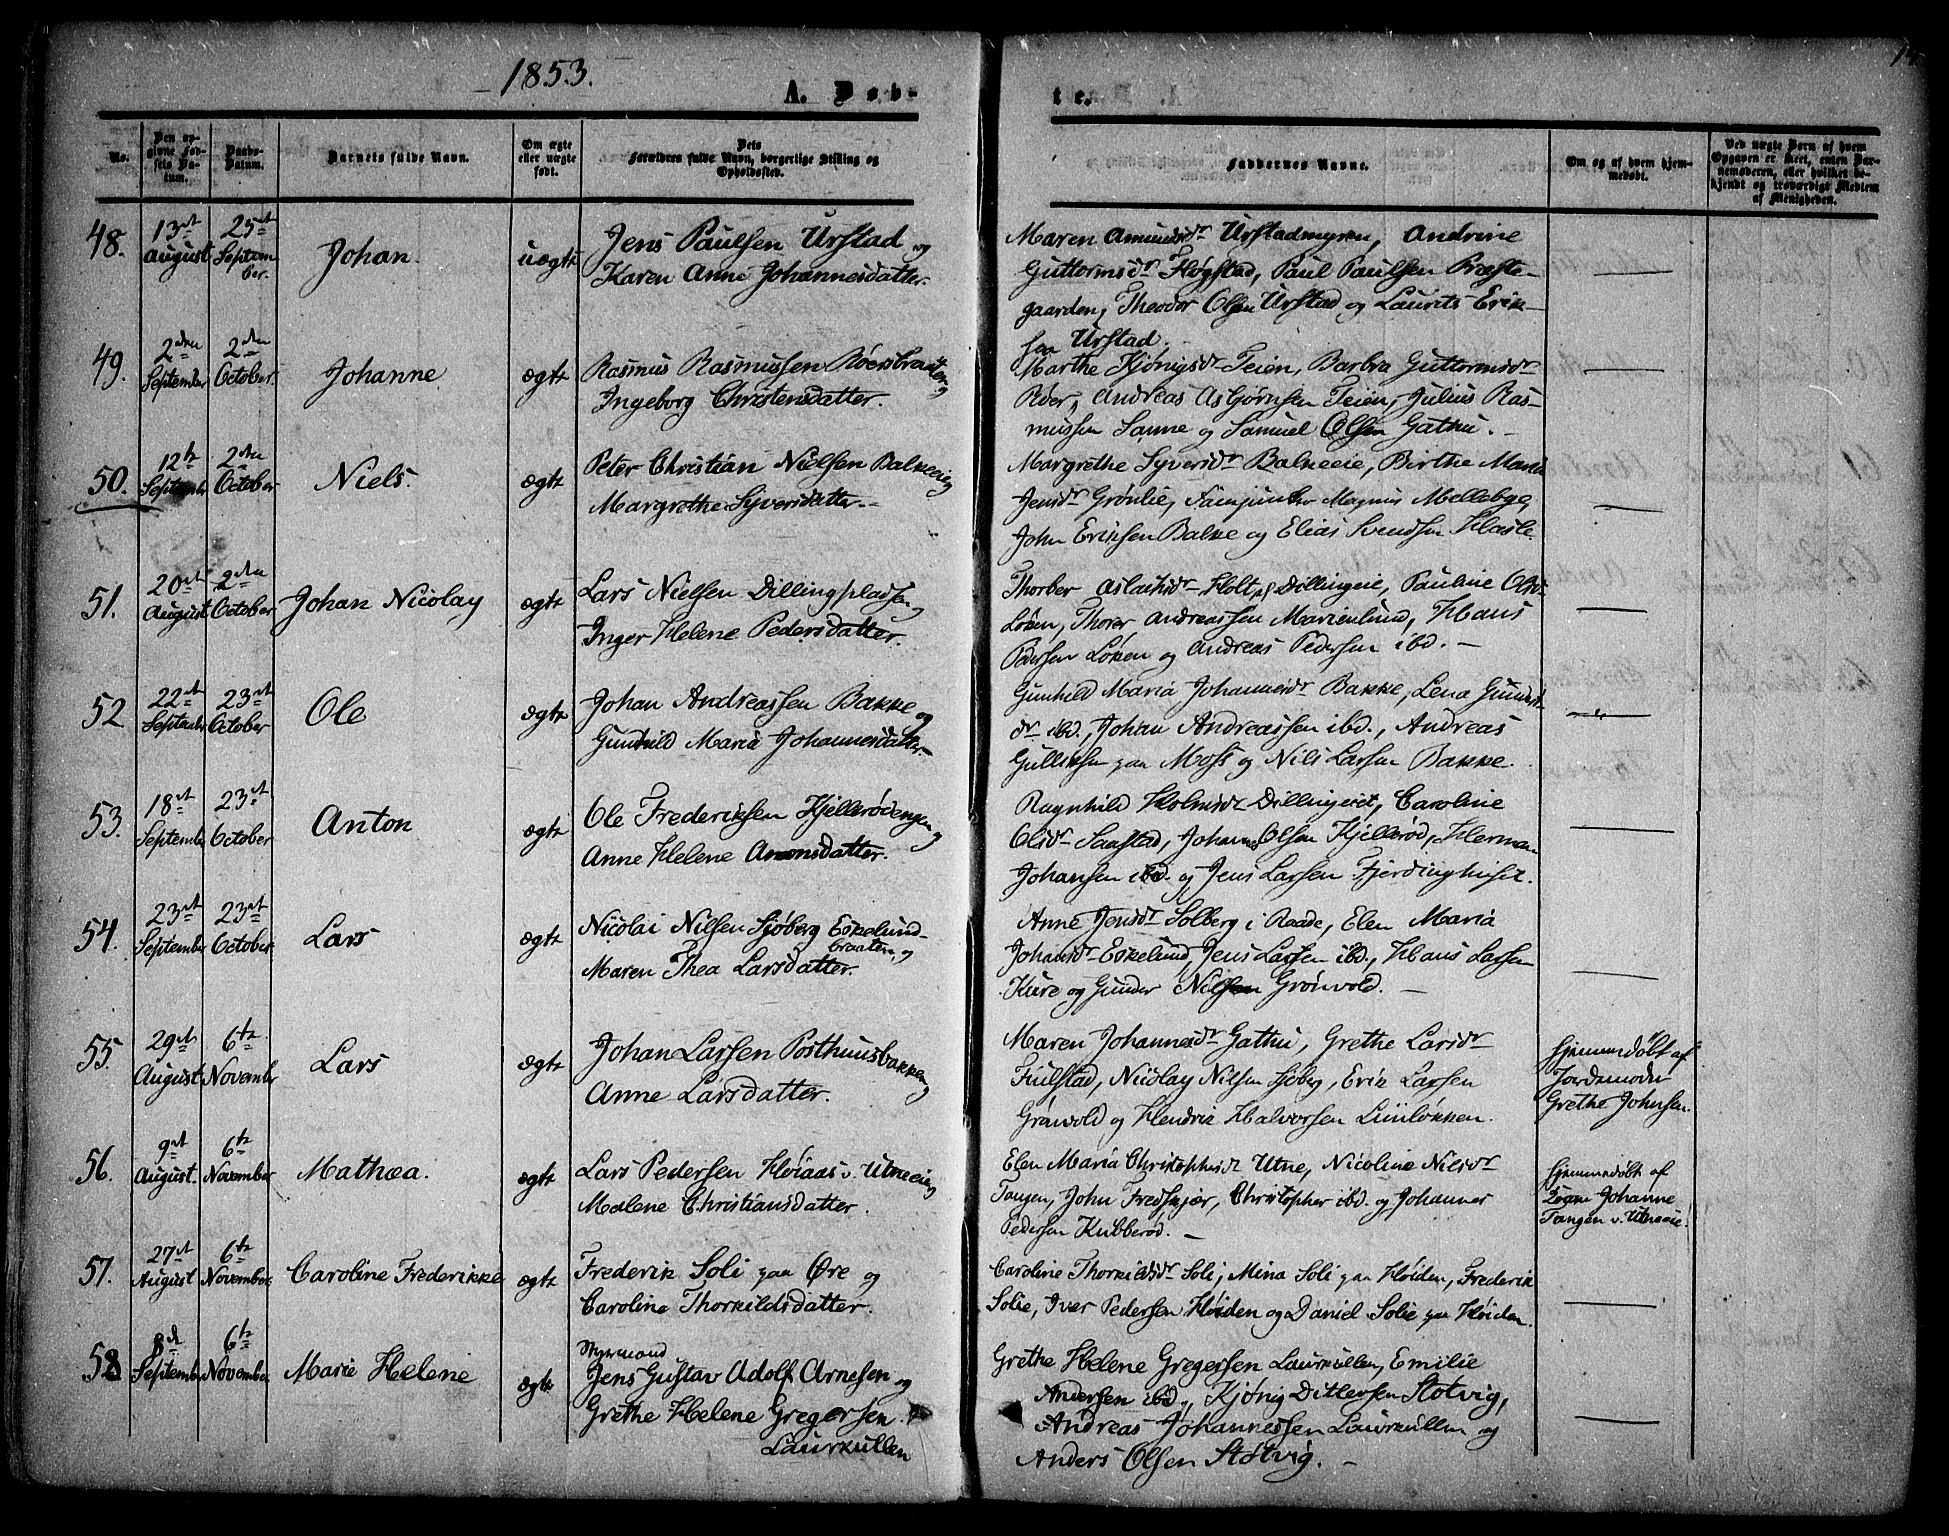 1853.
A. Døb-
te.
No.
Den op-
givne Fød-
sels Da-
tum.
Daabs-
Datum.
Barnets fulde Navn.
Om ægte
eller uægte
født.
Dets
Forældres fulde Navn, borgerlige Stilling og
Opholdssted.
Faddernes Navne.
Om og af hvem hjem-
medøbt.
Ved uægte Børn af hvem
Opgaven er skeet, enten Bar-
nemoderen, eller hvilket be-
kjendt og troværdigt Medlem
af Menigheden.
48. 13de August 25de Septem-
ber. Johan. uægte Jens Paulsen Urstad og
Karen Anne Johannesdatter.
Maren Amundsdr Urstadmyren, Andrine
Guttormsdr Fløgstad, Paul Paulsen Præste-
gaarden, Theodor Olsen Urstad og Laurits Erik-
sen Urstad.
49. 2den September 2den October Johanne ægte Rasmus Rasmussen Roersbraaten og
Ingeborg Christensdatter.
Marthe Kjønigsdr Teien, Barbra Guttormsdr
Roer, Andreas Asbjørnsen Teien, Julius Ras-
mussen Sanne og Samuel Olsen Gathu.
50. 12te September 2den October Niels. ægte Peter Christian Nielsen Balkeeie og
Margrethe Syversdatter.
Margrethe Syversdr Balkeeie, Birthe Maria
Jensdr Grønlie, Magnus Mellebye,
John Eriksen Balke og Elias Svendsen Hasle.
51. 20de August 2den October Johan Nicolay ægte Lars Nielsen Dillingpladsen og
Inger Helene Pedersdatter.
Thorber Aslaksdr Holt, Dillingeie, Pauline Olsdr
Løken, Thorer Andreassen Marienlund, Hans
Pedersen Løken og Andreas Pedersen ibd.
52 22de September 23de October Ole ægte Johan Andreassen Bakke og
Gunhild Maria Johannesdatter
Gunhild Maria Johannesdr Bakke, Lena
dr ibd., Johan Andreassen ibd., Andreas
Gulliksen paa Moss og Nils Larsen Bakke.
53. 18de September 23de October Anton ægte Ole Frederiksen Kjellerødengen og
Anne Helene Amonsdatter.
Ragnhild Holmsdr Dillingeiet, Caroline
Olsdr Saastad, Johannes Olsen Kjellerød, Herman
Johansen ibd. og Jens Larsen Fjerdinghuset.
54. 23de September 23de October. Lars ægte Nicolai Nilsen Sjøberg Eskelund-
braaten, og
Maren Thea Larsdatter.
Anne Jensdr Solberg i Raade, Elen Maria
Johansdr Eskelund, Jens Larsen ibd., Hans Larsen
Kure og Gunder Nilsen Grønvold.
55. 29de August 6te November Lars ægte Johan Larsen Posthuusbakken og
Anne Larsdatter.
Maren Johannesdr Gathu, Grethe Larsdr
Fuilstad, Nicolay Nilsen Sjøberg, Erik Larsen
Grønvold og Hendrik Halvorsen Linløkken.
Hjemmedøbt af
Jordemoder
Grethe Johnsen.
56. 9de August. 6te November Mathea. ægte Lars Pedersen Høiaas v. Utneeie og
Malene Christiansdatter.
Elen Maria Christophersdr Utne, Nicoline Nilsdr
Tangen, John Fredskjær, Christopher ibd. og Johannes
Pedersen Kubberød.
Hjemmedøbt af
Johanne
Tangen v. Utneeie.
57. 27de August 6te November. Caroline Frederikke ægte Frederik Soli paa Øre og
Caroline Thorkildsdatter.
Caroline Thorkildsdr Soli, Mina Soli paa Høiden, Frederik
Solie, Iver Pedersen Høiden og Daniel Solie paa Høiden.
58 8de September 6te November Marie Helene ægte Styrmand
Jens Gustav Adolf Arnesen og
Grethe Helene Gregersen
Laurkullen
Grethe Helene Gregersen Laurkullen, Emilie
Andersen ibd., Kjønig Ditlefsen Støtvig,
Andreas Johannessen Laurkullen og
Anders Olsen Støtvig.